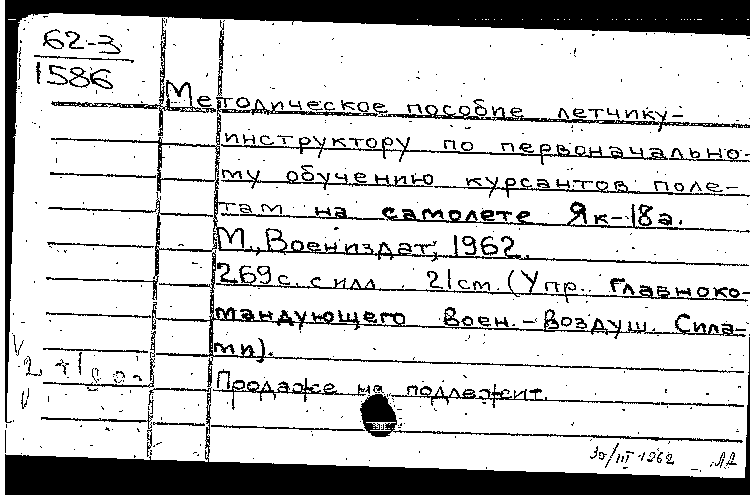 62-3
1586
Методическое пособие летчику-
инструктору по первоначально-
му обучению курсантов поле-
там на самолете Як-18а.
М., Воениздат, 1962.
269 с. с илл. 21 см. (Упр. Главноко-
мандующего Воен.-Воздуш. Сила-
ми).
Продаже не подлежит.
30/III 1962